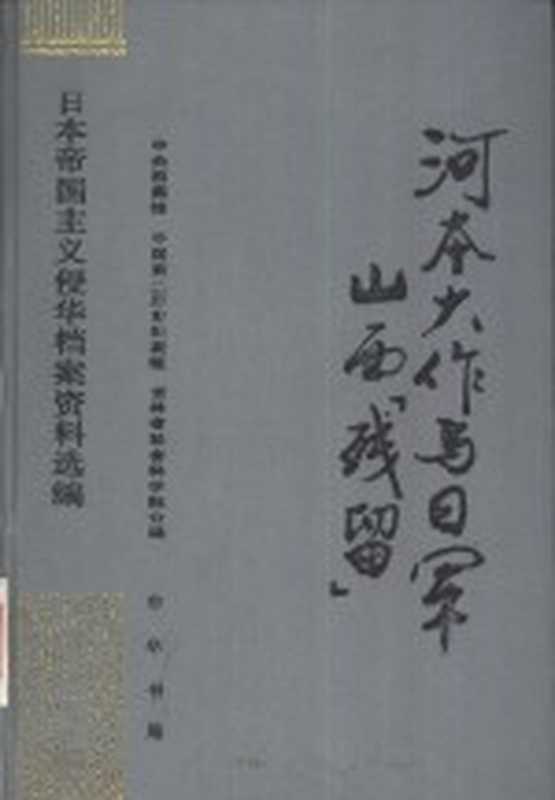 河本大作与日军
山西「残留」
中央档案馆 中国第二历史档案馆 吉林省社会科学院合编
中华书局
日本帝国主义侵华档案资料选编